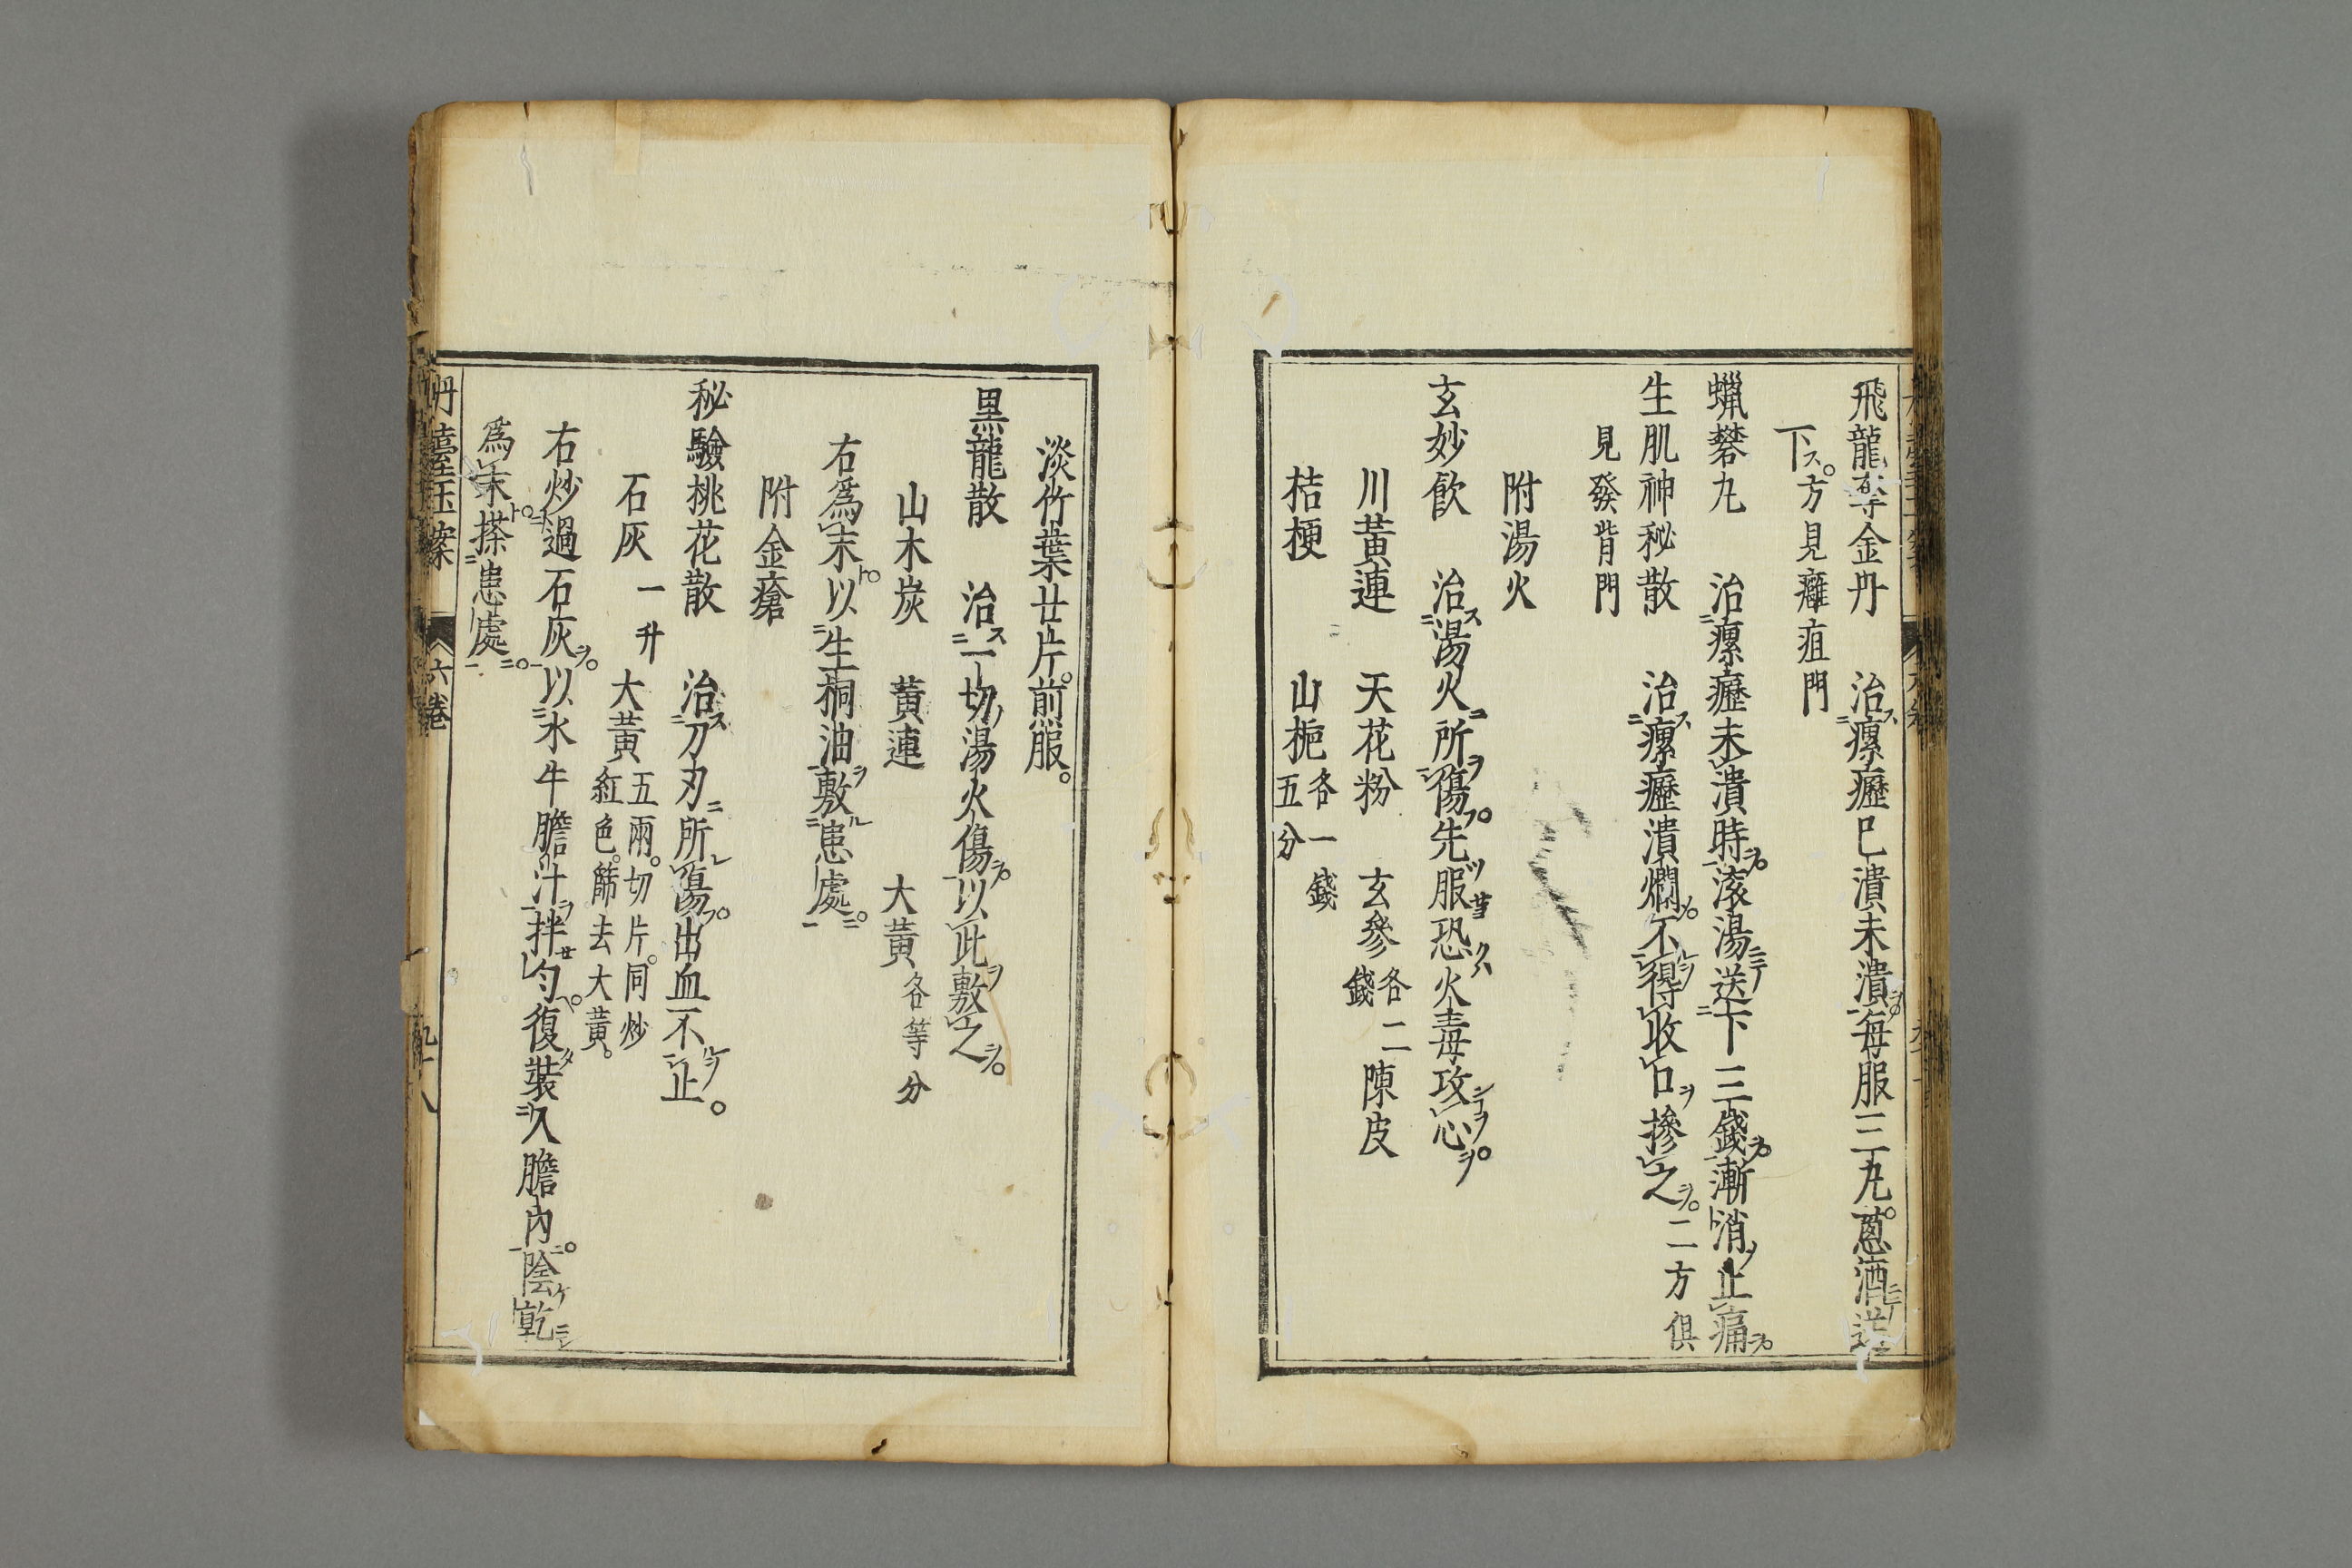 飛龍奪金丹　治瘰癧已潰未潰每服三九。蔥酒送
下。方見癰疽門
蠟礬九　治瘰癧未潰時滚湯送下三錢漸消止痛
生肌神秘散　治瘰癧潰爛不得收口摻之。二方俱
見發背門
附湯火
玄妙飲　治湯火所傷。先服恐火毒攻心。
川黃連　天花粉　玄參各二錢　陳皮
桔梗　山梔各一錢五分
淡竹葉廿片。煎服。
黒龍散　治一切湯火傷。以此敷之。
山木炭　黃連　大黃各等分
右爲末。以生桐油敷患處。
附金瘡
秘驗桃花散　治刀刃所傷。出血不止。
石灰一升　大黃五兩。切片。同炒紅色。篩去大黃。
右炒過石灰。以水牛膽汁拌勻。復裝入膽內。陰乾
爲末。搽患處。
丹臺玉案　六卷